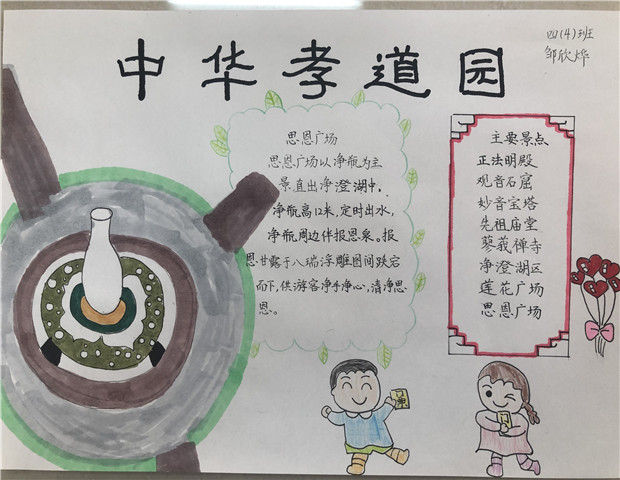 中华孝道园
四(4)班
邹欣烨
思恩广场
思恩广场以净瓶为主
景,直出净澄湖中,
净瓶高12米,定时出水,
净瓶周边伴报恩采。报
恩甘露于八瑞浮雕图间跌宕
而下,供游客净手净心,清净思
恩。
主要景点
正法明殿
观音石窟
妙音宝塔
先祖庙堂
蓼莪禅寺
净澄湖区
莲花广场
思恩广场